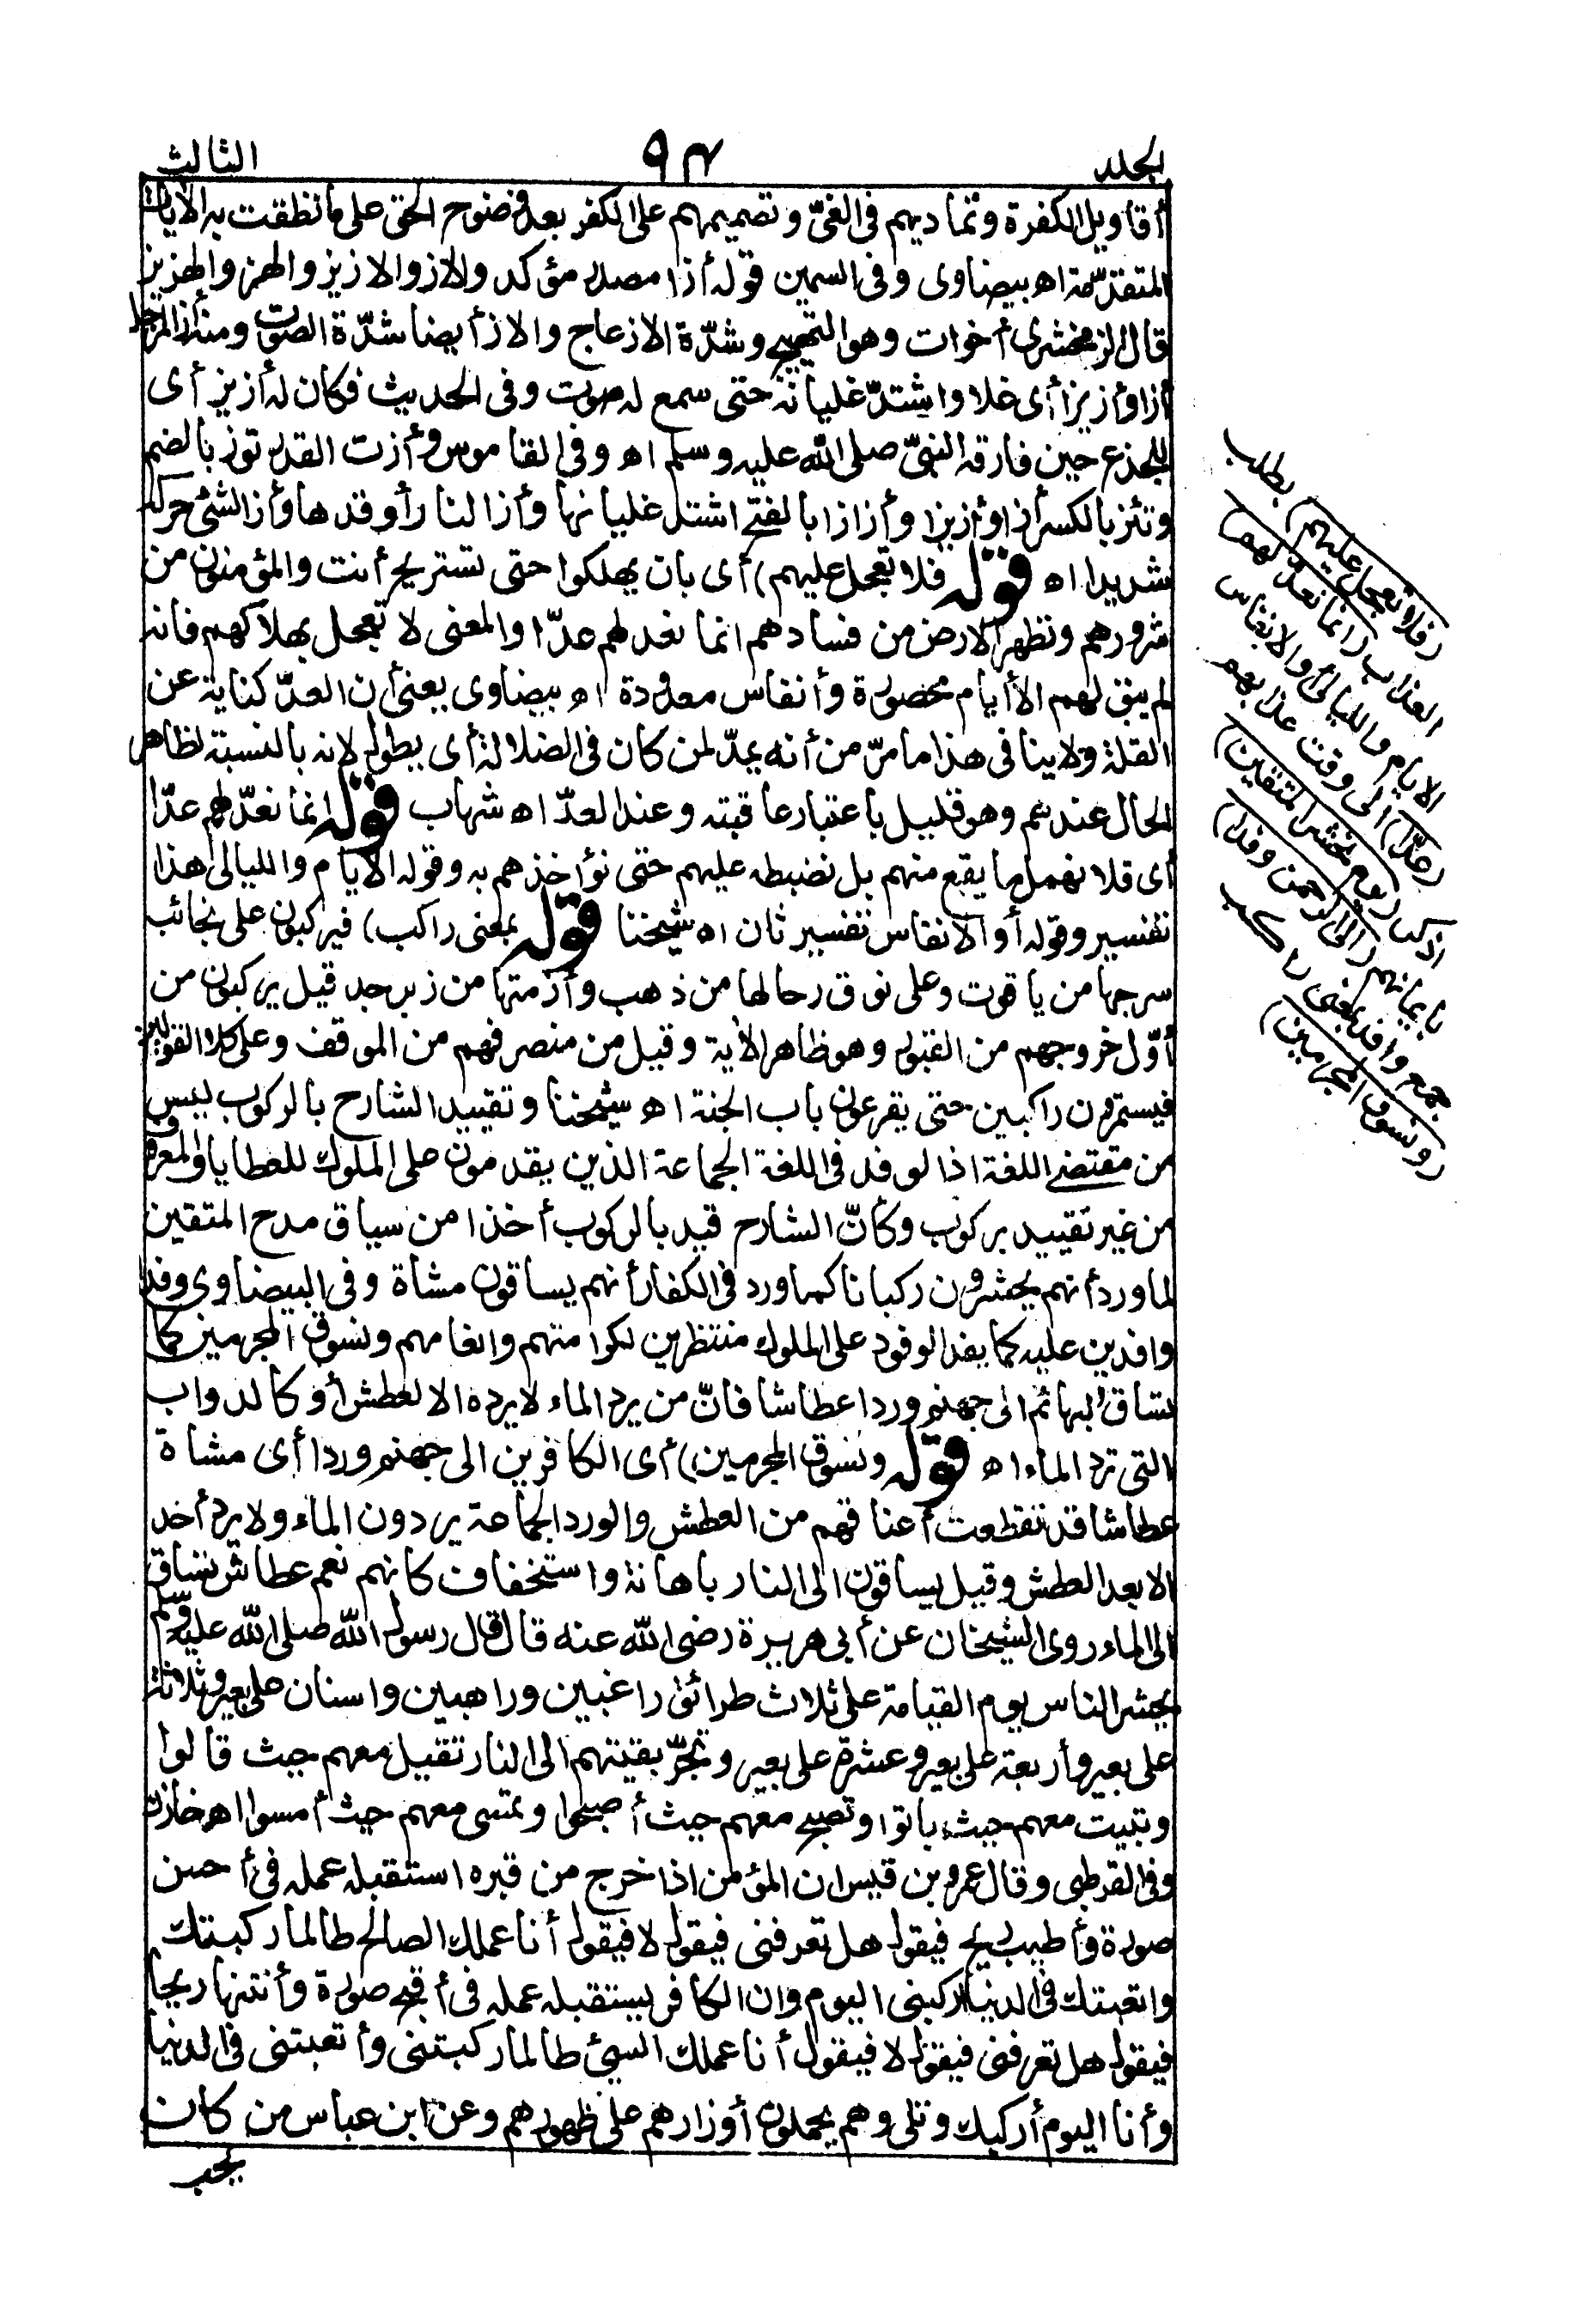 الجلد ٩٤ الثالث
أقاويل الكفرة وتماديهم فى الغىّ وتصميمهم على الكفر بعد وضوح الحق على ما نطقت به الآيات
المتقدّمة اه بيضاوى وفى السمين قوله أزا مصدر مؤكد والاز والازيز والهز والهزيز
قال الزمخشرى أخوات وهو التهييج وشدّة الازعاج والاز أيضا شدّة الصوت ومنه أز المرجل
أزا وأزيزا أى غلا واشتدّ غليانه حتى سمع له صوت وفى الحديث فكان له أزيز أى
للجذع حين فارقه النبىّ صلى الله عليه وسلم اه وفى القاموس وأزت القدر توز بالضم
وتئز بالكسر أزا وأزيزا وأزازا بالفتح اشتد غليانها وأز النار أوقدها وأز الشئ حركه
شديدا اه قوله فلا تعجل عليهم) أى بان يهلكوا حتى تستريح أنت والمؤمنون من
شرورهم وتطهر الارض من فسادهم انما نعد لهم عدّا والمعنى لا تعجل بهلاكهم فانه
لم يبق لهم الا أيام محصورة وأنفاس معدودة اه بيضاوى يعنى أن العدّ كناية عن
القلة ولا ينافى هذا ما مرّ من أنه يمدّ لمن كان فى الضلالة أى يطول لانه بالنسبة لظاهر
الحال عندهم وهو قليل باعتبار عاقبته وعند العدّ اه شهاب قوله انما نعدّ لهم عدّا
أى فلا نهمل ما يقع منهم بل نضبطه عليهم حتى نؤاخذهم به وقوله الايام والليالى هذا
تفسير وقوله أو الانفاس تفسير ثان اه شيخنا قوله بمعنى راكب) فيركبون على نجائب
سرجها من ياقوت وعلى نوق رحالها من ذهب وأزمتها من زبرجد قيل يركبون من
أوّل خروجهم من القبور وهو ظاهر الآية وقيل من منصرفهم من الموقف وعلى كلا القولين
فيستمرون راكبين حتى يقرعون باب الجنة اه شيخنا وتقييد الشارح بالركوب ليس
من مقتضى اللغة اذ الوفد فى اللغة الجماعة الذين يقدمون على الملوك للعطايا والمعروف
من غير تقييد بركوب وكأنّ الشارح قيد بالركوب أخذا من سياق مدح المتقين
لما ورد أنهم يحشرون ركبانا كما ورد فى الكفار أنهم يساقون مشاة وفى البيضاوى وفدا
وافدين عليه كما يفد الوفود على الملوك منتظرين لكرامتهم وانعامهم ونسوق المجرمين كما
تساق البهائم الى جهنم وردا عطاشا فانّ من يرد الماء لا يرده الا لعطش أو كالدواب
التى ترد الماء اه قوله ونسوق المجرمين) أى الكافرين الى جهنم وردا أى مشاة
عطاشا قد تقطعت أعناقهم من العطش والورد الجماعة يردون الماء ولا يرد أحد
الا بعد العطش وقيل يساقون الى النار باهانة واستخفاف كانهم نعم عطاش تساق
الى الماء روى الشيخان عن أبى هريرة رضى الله عنه قال قال رسول الله صلى الله عليه وسلم
يحشر الناس يوم القيامة على ثلاث طرائق راغبين وراهبين واسنان على بعير وثلاثة
على بعير وأربعة على بعير وعشرة على بعير وتجرّ بقيتهم الى النار تقيل معهم حيث قالوا
وتبيت معهم حيث باتوا وتصبح معهم حيث أصبحوا وتمسى معهم حيث أمسوا اه خازن
وفى القرطبى وقال عمرو بن قيس ان المؤمن اذا خرج من قبره استقبله عمله فى أحسن
صورة وأطيب ريح فيقول هل تعرفنى فيقول لا فيقول أنا عملك الصالح طالما ركبتك
واتعبتك فى الدنيا اركبنى اليوم وان الكافر يستقبله عمله فى أقبح صورة وأنتنها ريحا
فيقول هل تعرفنى فيقول لا فيقول أنا عملك السيئ طالما ركبتنى وأتعبتنى فى الدنيا
وأنا اليوم أركبك وتلى وهم يحملون أوزارهم على ظهورهم وعن ابن عباس من كان
يحب
(فلا تعجل عليهم) بطلب
العذاب (انما نعدّ لهم)
الايام والليالى والانفاس
(عدّا) الى وقت عذابهم
اذكر (يوم نحشر المتقين)
بايمانهم (الى الرحمن وفدا)
جمع وافد بمعنى راكب
(ونسوق المجرمين)